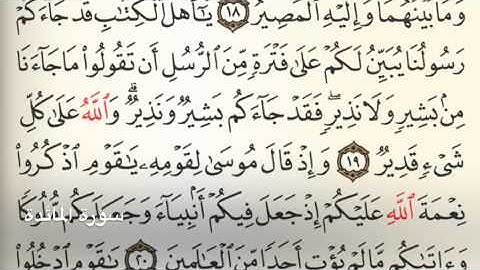 وَمَا بَيْنَهُمَا وَإِلَيْهِ ٱلْمَصِيرُ ١٨ يَـٰٓأَهْلَ ٱلْكِتَـٰبِ قَدْ جَآءَكُمْ
رَسُولُنَا يُبَيِّنُ لَكُمْ عَلَىٰ فَتْرَةٍ مِّنَ ٱلرُّسُلِ أَن تَقُولُوا۟ مَا جَآءَنَا
مِنۢ بَشِيرٍ وَلَا نَذِيرٍ ۖ فَقَدْ جَآءَكُم بَشِيرٌ وَنَذِيرٌ ۗ وَٱللَّهُ عَلَىٰ كُلِّ
شَىْءٍ قَدِيرٌ ١٩ وَإِذْ قَالَ مُوسَىٰ لِقَوْمِهِۦ يَـٰقَوْمِ ٱذْكُرُوا۟
نِعْمَةَ ٱللَّهِ عَلَيْكُمْ إِذْ جَعَلَ فِيكُمْ أَنۢبِيَآءَ وَجَعَلَكُم مُّلُوكًا
سورة المائدة
وَءَاتَىٰكُم مَّا لَمْ يُؤْتِ أَحَدًا مِّنَ ٱلْعَـٰلَمِينَ ٢٠ يَـٰقَوْمِ ٱدْخُلُوا۟